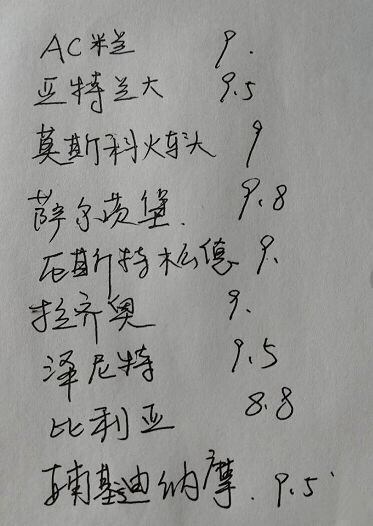 AC米兰 9.
亚特兰大 9.5
莫斯科火车头 9
萨尔茨堡. 9.8
厄斯特松德 9.
拉齐奥 9.
泽尼特 9.5
比利亚 8.8
辅基迪纳摩. 9.5